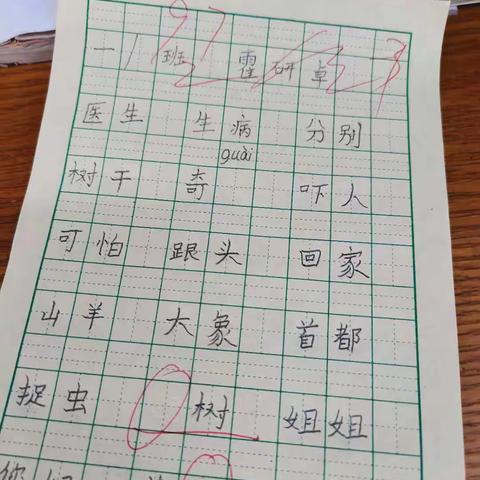 97
一八班 霍研卓
医生 生病 分别
guài
树干 奇 吓人
可怕 跟头 回家
山羊 大象 首都
捉虫 树 姐姐